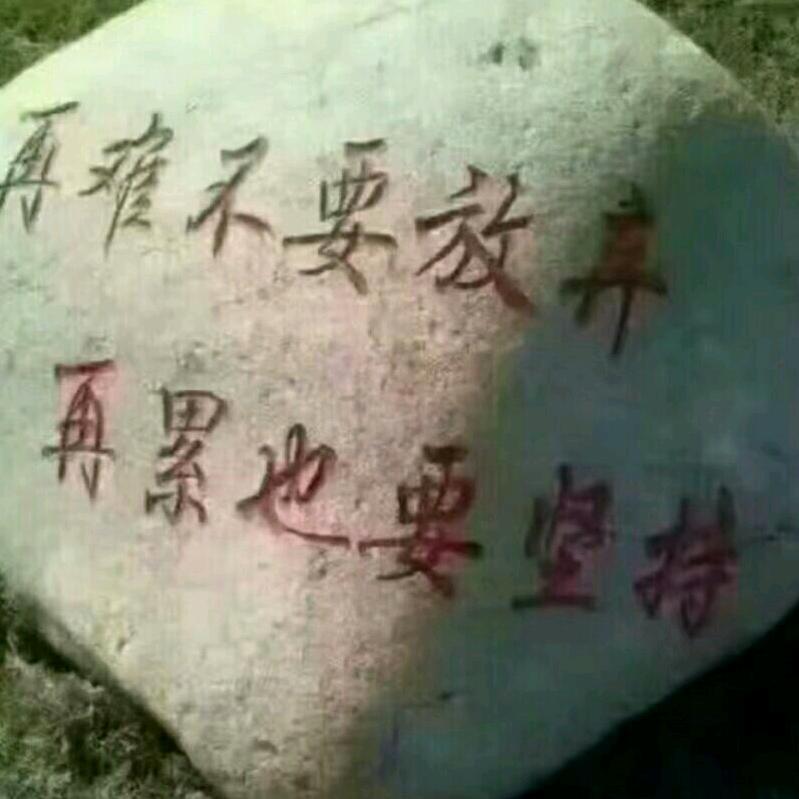 再难不要放弃
再累也要坚持